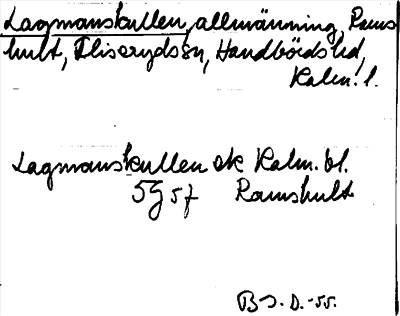 Lagmanskullen, allmänning, Rams
hult, Fliseryds sn, Handbörds hd,
Kalm. l.
Lagmanskullen ek Kalm. bl.
5G 5f Ramshult
B S. D. -55.